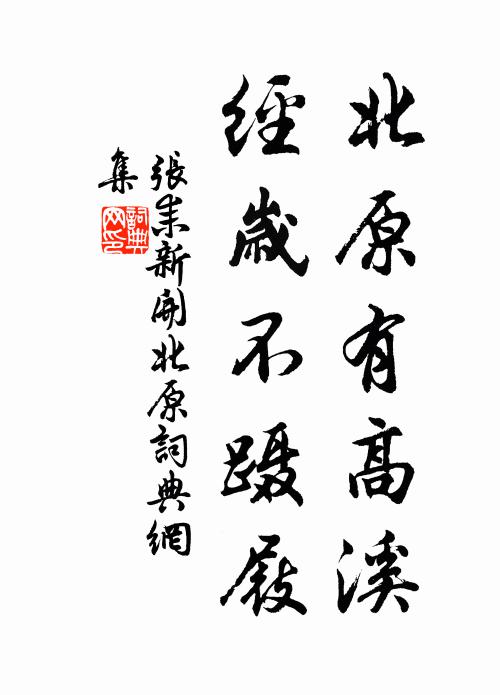 北原有高溪
經歲不躡屐
張耒新開北原詞典網
集
詞典
网印